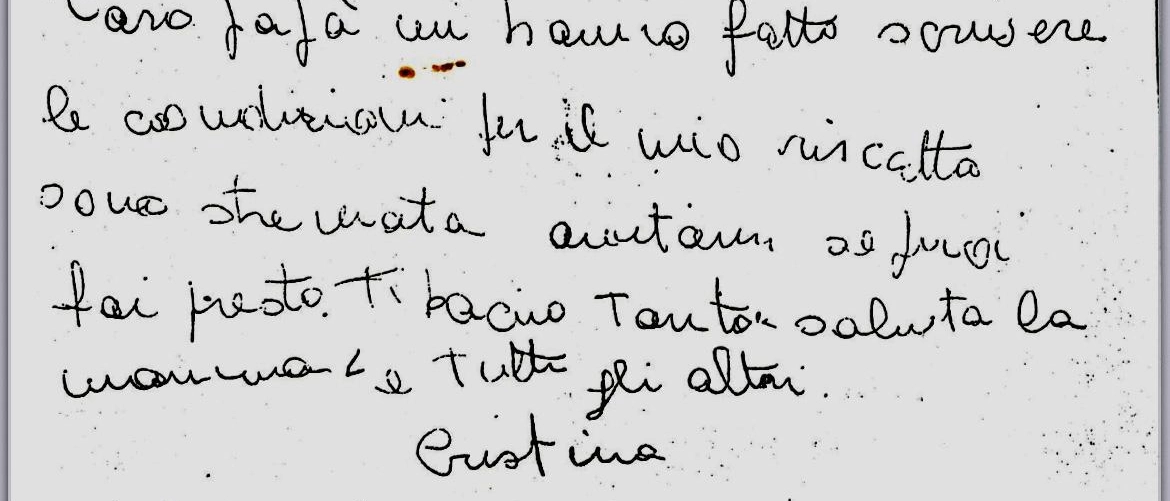 Caro papà mi hanno fatto scrivere
le condizioni per il mio riscatto
sono stremata aiutami se puoi
fai presto. Ti bacio tanto saluta la
mamma e tutti gli altri.
Cristina